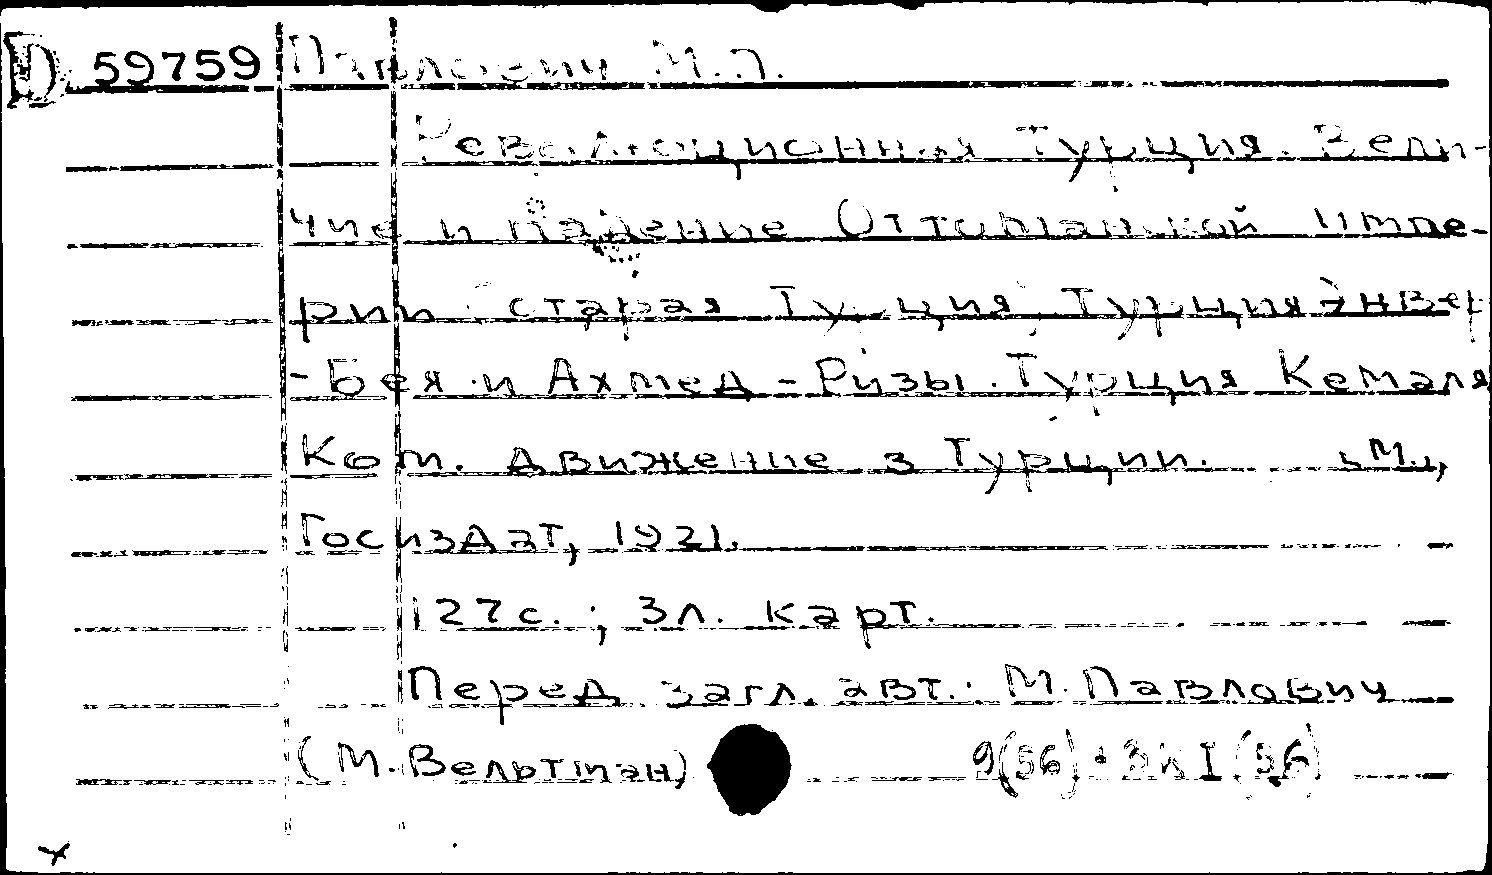 D 59759 Павлович М.П.
Революционная Турция. Вели-
чие и падение Оттоманской Импе-
рии старая Турция, Турция Энвер
-Бея и Ахмед-Ризы. Турция Кемаля
Ком. движение в Турции. М.,
Госиздат, 1921.
127с.; 3л. карт.
Перед загл. авт.: М. Павлович
(М. Вельтман) 9(56)+3КI(56)